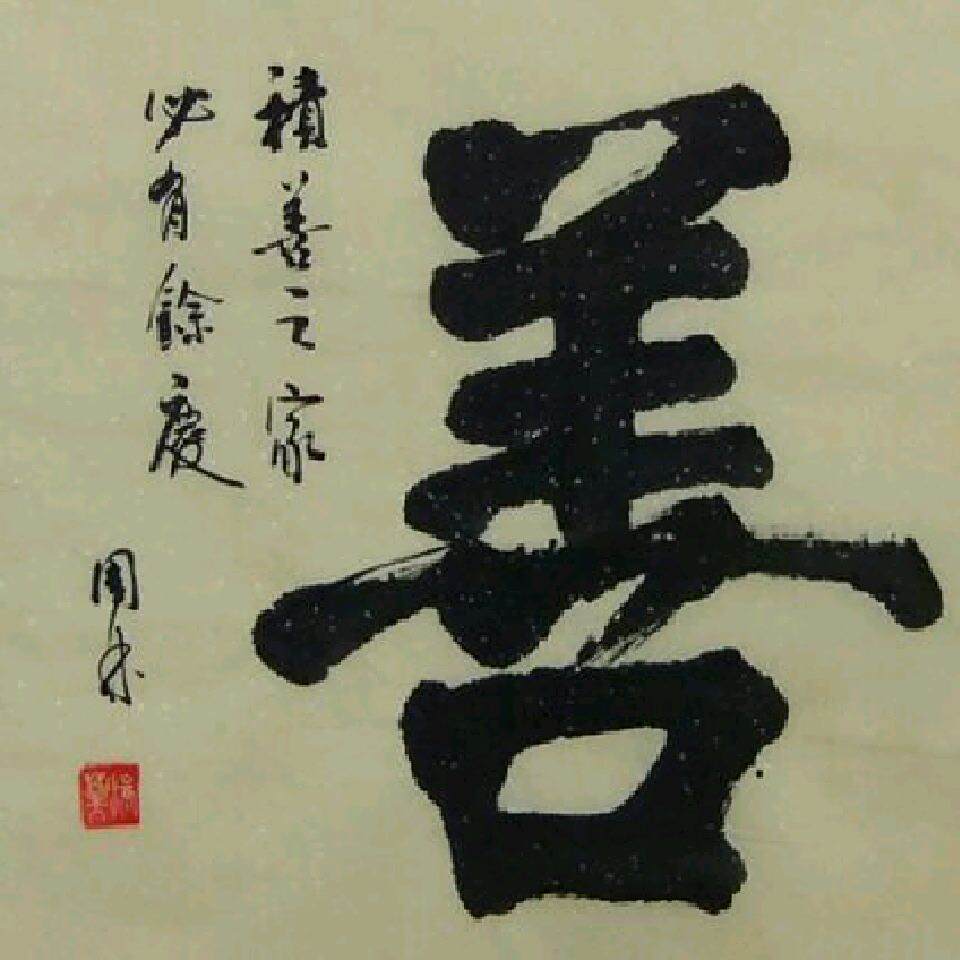 善
積善之家
必有餘慶
周